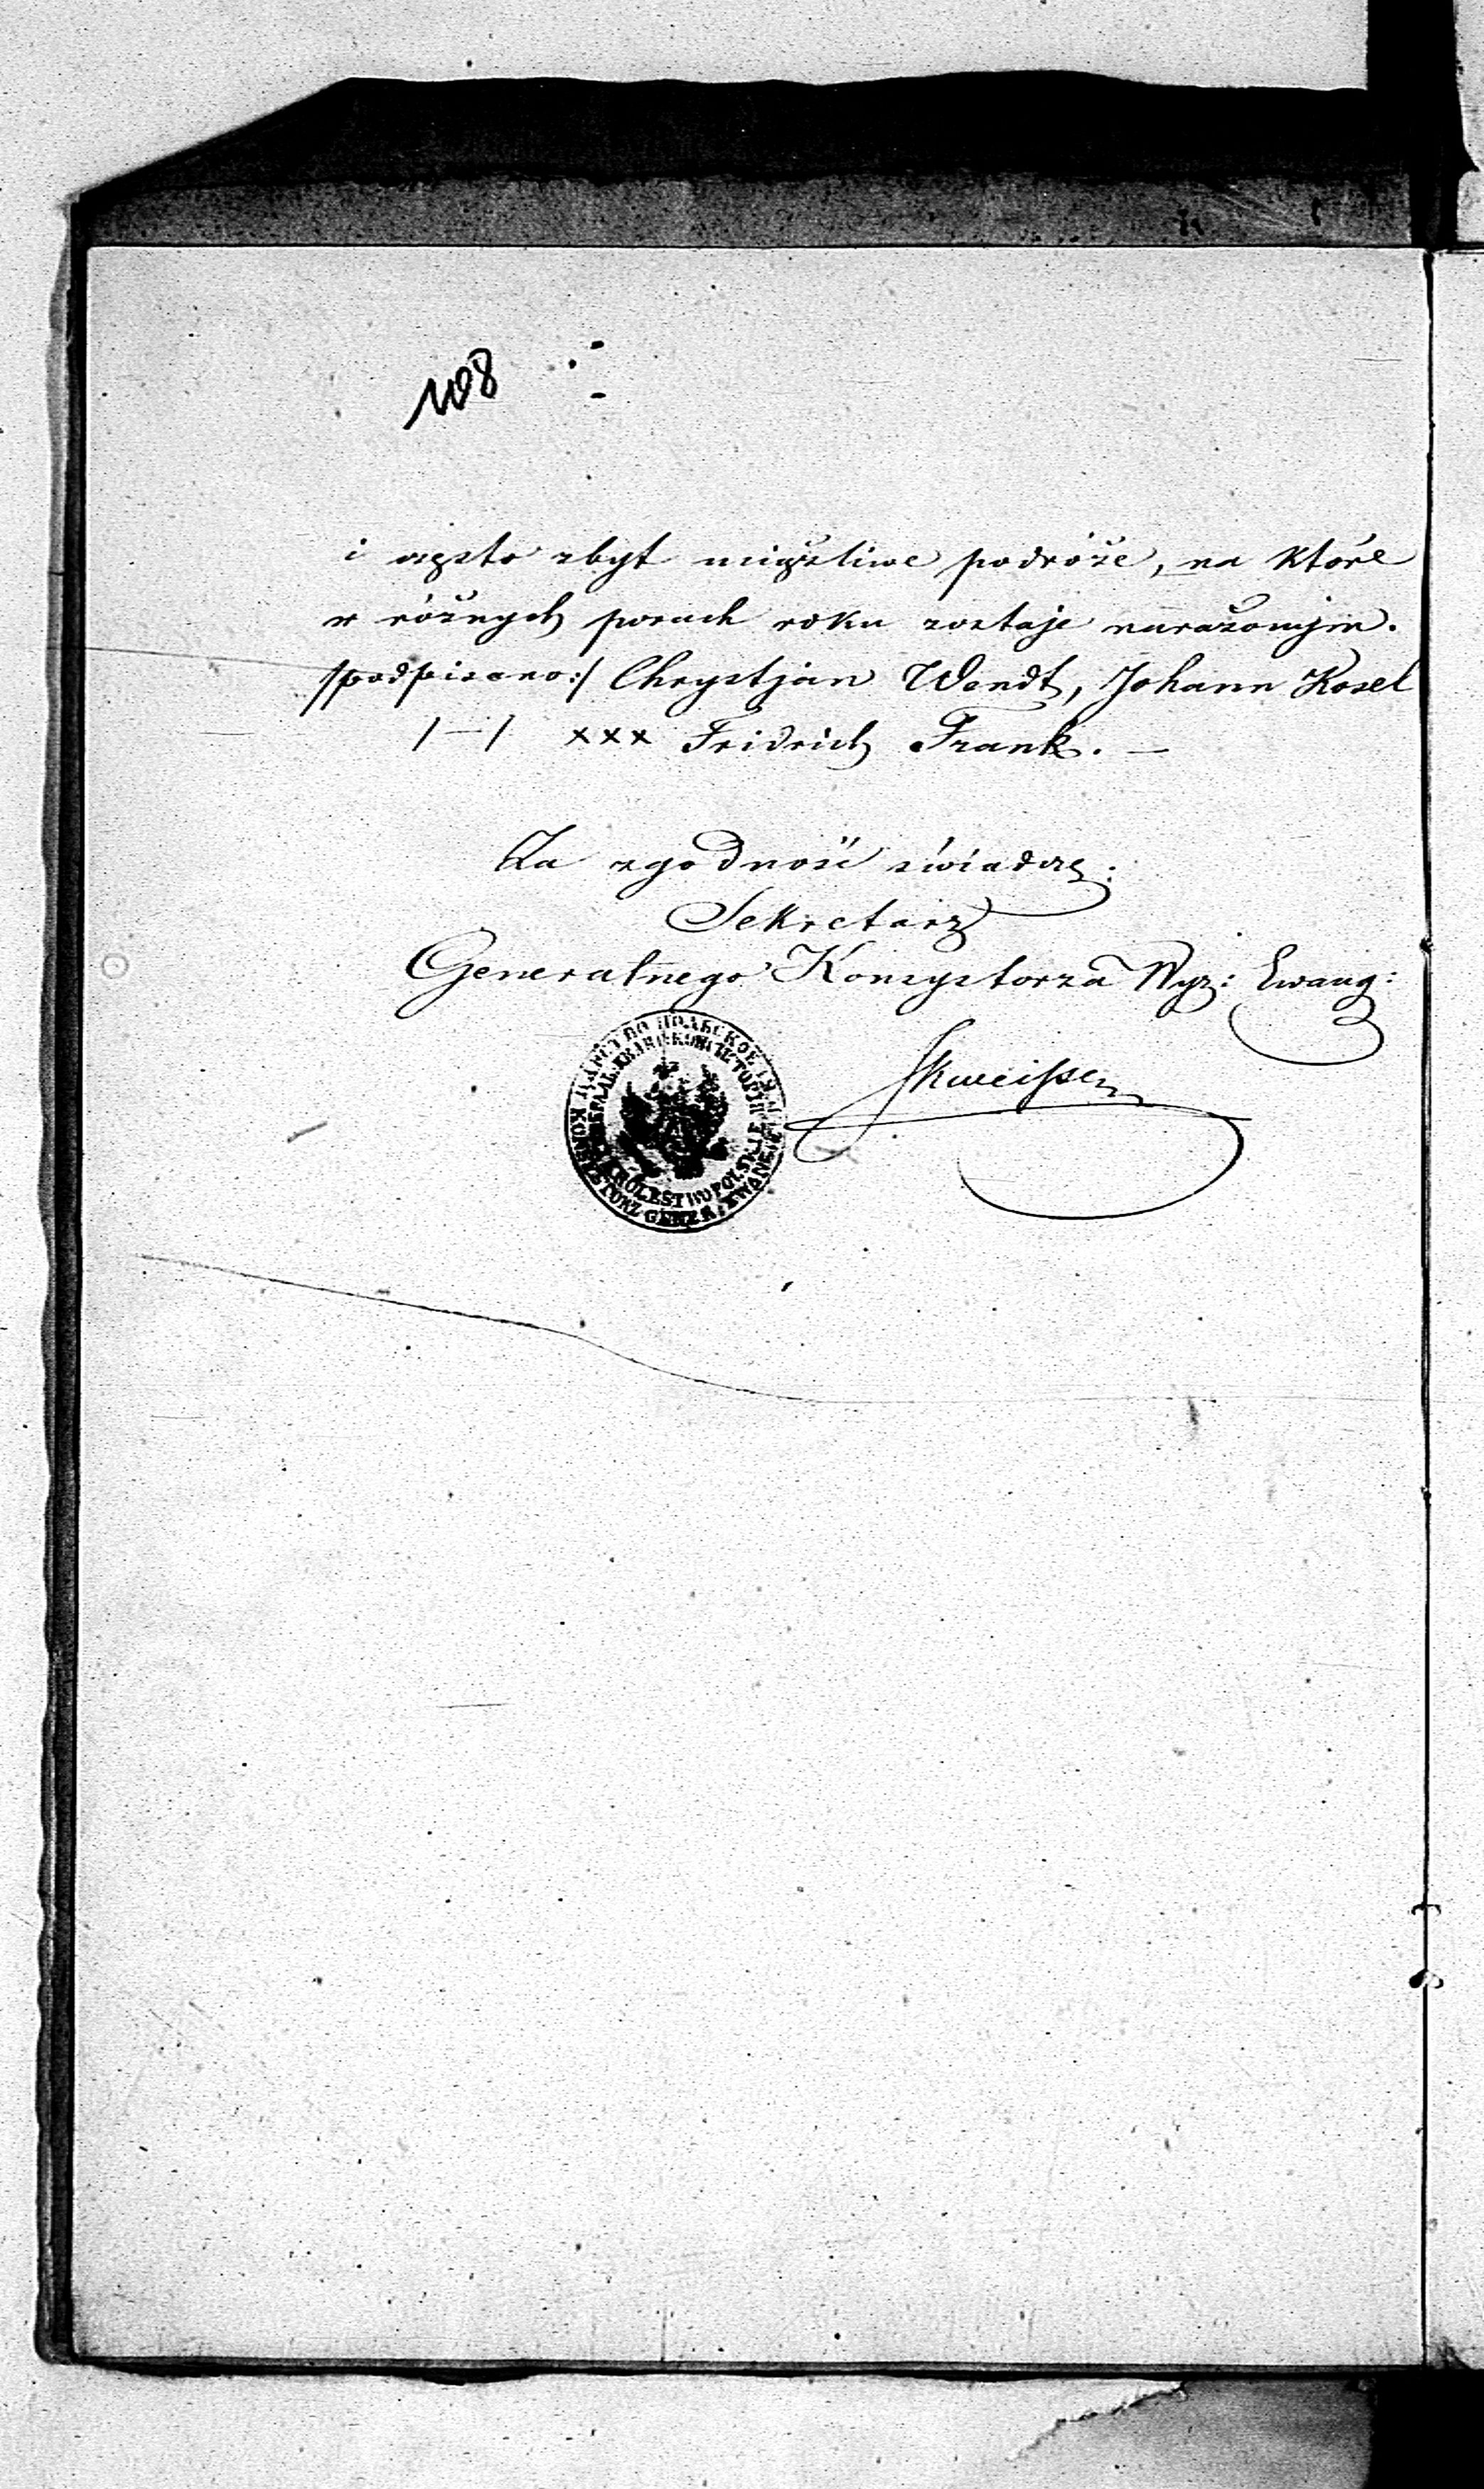 108
i często zbyt uciążliwe podróże, na które
w różnych porach roku zostaje narażonym.
/podpisano:/ Chrystjan Wendt, Johann Kosel
/—/ xxx Fridrich Frank. —
Za zgodność świadczę:
Sekretarz
Generalnego Konsystorza Wyz: Ewang:
KRÓLESTWO POLSKIE
KONSYSTORZ GENER. EWANGE